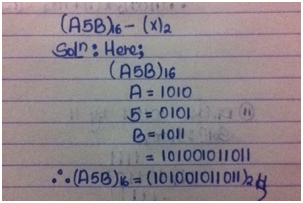 (A5B)₁₆ - (x)₂
Solⁿ: Here;
(A5B)₁₆
A = 1010
5 = 0101
B = 1011
= 101001011011
∴ (A5B)₁₆ = (101001011011)₂